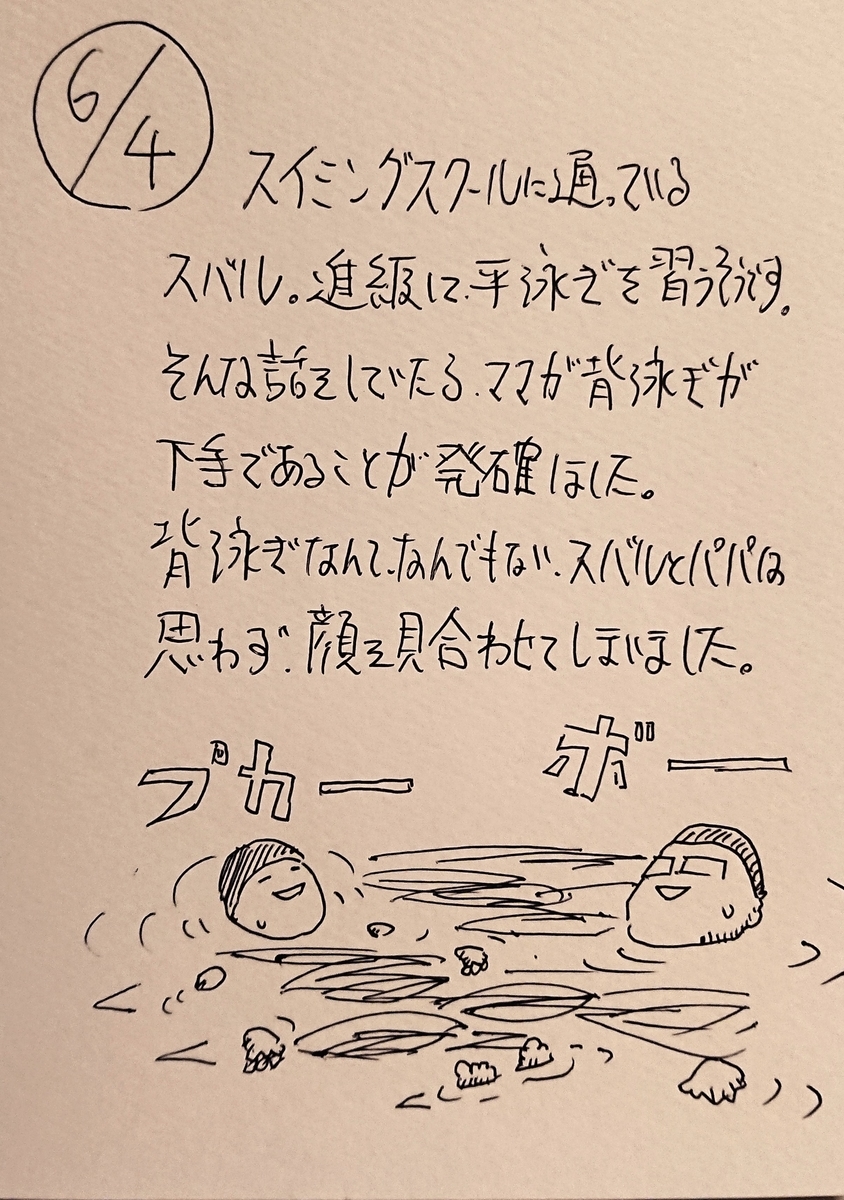 6/4
スイミングスクールに通っている
スバル。進級して、平泳ぎを習うそうです。
そんな話をしていたら、ママが背泳ぎが
下手であることが発確しました。
背泳ぎなんて、なんでもない、スバルとパパは
思わず、顔を見合わせてしまいました。
プカー
ボー